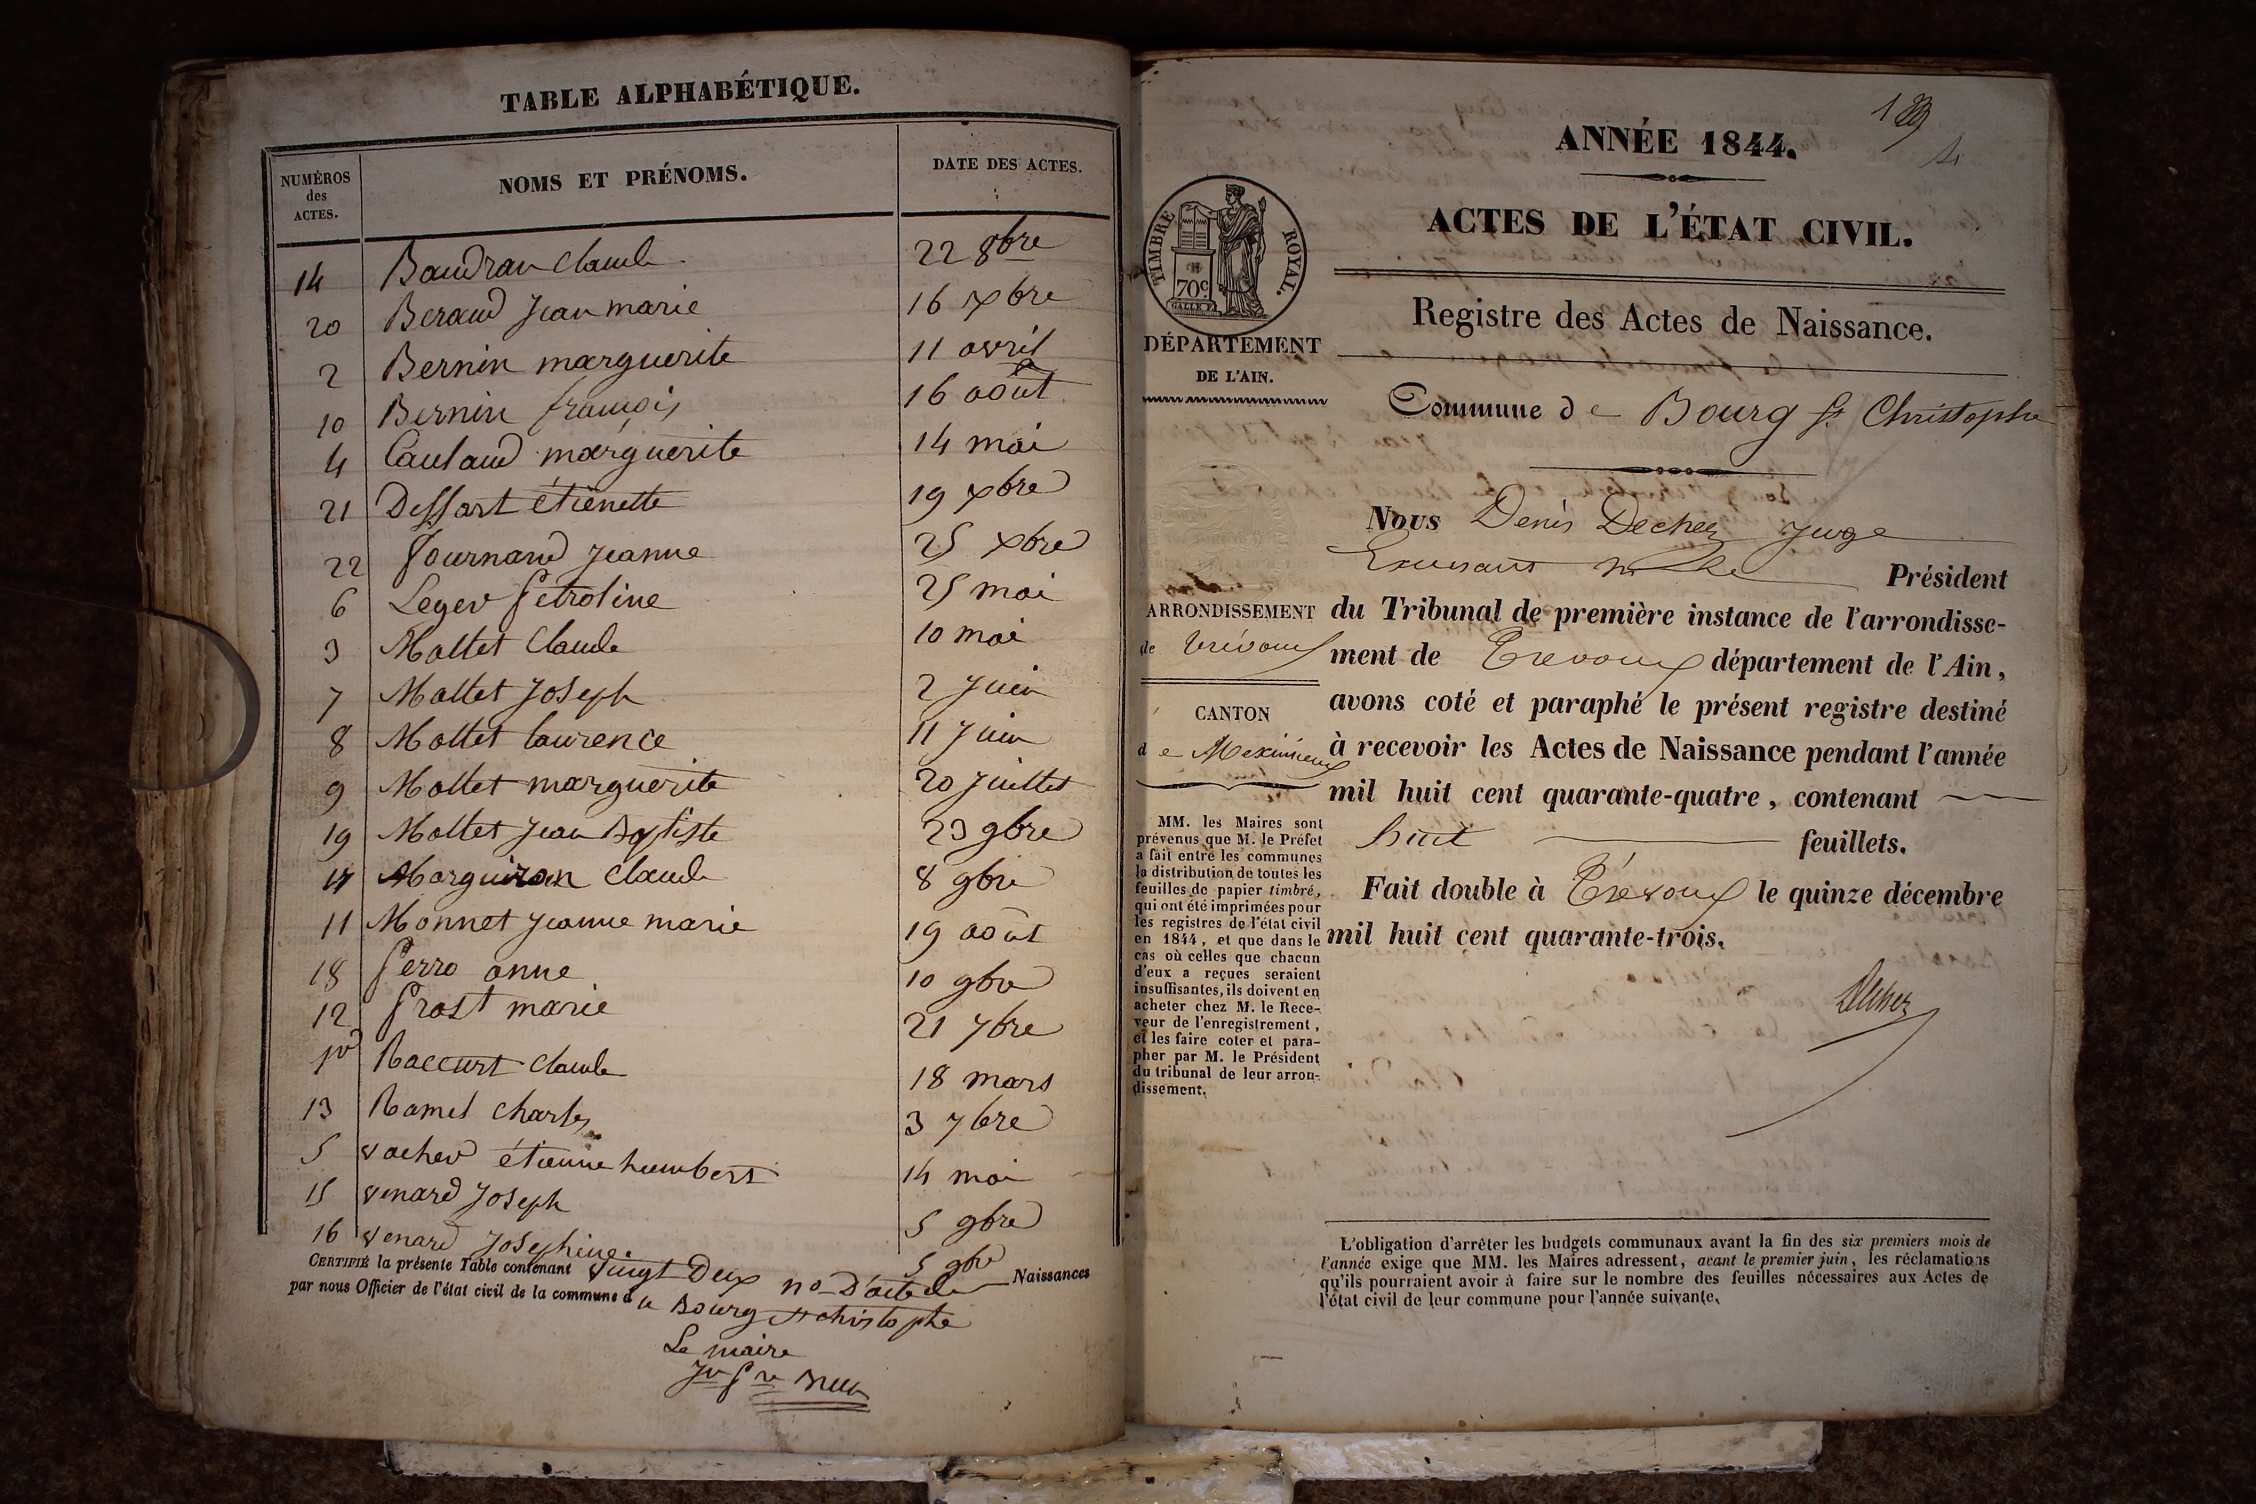 TABLE ALPHABÉTIQUE.
NUMÉROS des ACTES. NOMS ET PRÉNOMS. DATE DES ACTES.
14 Baudran Claude 22 8bre
20 Beraud Jean marie 16 xbre
2 Bernin marguerite 11 avril
10 Bernin françois 16 août
4 Caulaud marguerite 14 mai
21 Dessart étiènette 19 xbre
22 Journand Jeanne 25 xbre
6 Leger Petroline 25 mai
3 Mollet Claude 10 mai
7 Mollet Joseph 2 Juin
8 Mollet laurence 11 Juin
9 Mollet marguerite 20 Juillet
19 Mollet Jean Baptiste 23 9bre
17 Morguiron Claude 8 9bre
11 Monnet Jeanne marie 19 août
18 Perro anne 10 9bre
12 Prost marie 21 7bre
1er Raccurt Claude 18 mars
13 Ramel Charles 3 7bre
5 vacher étienne humbert 14 mai
15 venard Joseph 5 9bre
16 venard Josephine. 5 9bre
CERTIFIÉ la présente Table contenant vingt Deux no D'acte de Naissances
par nous Officier de l'état civil de la commune de Bourg St christophe
Le maire
189
ANNÉE 1844.
ACTES DE L'ÉTAT CIVIL.
TIMBRE ROYAL.
70c
Registre des Actes de Naissance.
DÉPARTEMENT
DE L'AIN.
Commune de Bourg St Christophe
Nous Denis Dechez Juge
Président
ARRONDISSEMENT
de trévoux
CANTON
de Meximieux
du Tribunal de première instance de l'arrondisse-
ment de Trevoux département de l'Ain,
avons coté et paraphé le présent registre destiné
à recevoir les Actes de Naissance pendant l'année
mil huit cent quarante-quatre, contenant
huit feuillets.
Fait double à Trévoux le quinze décembre
mil huit cent quarante-trois.
Dechez
MM. les Maires sont
prévenus que M. le Préfet
a fait entre les communes
la distribution de toutes les
feuilles de papier timbré,
qui ont été imprimées pour
les registres de l'état civil
en 1844, et que dans le
cas où celles que chacun
d'eux a reçues seraient
insuffisantes, ils doivent en
acheter chez M. le Rece-
veur de l'enregistrement,
et les faire coter et para-
pher par M. le Président
du tribunal de leur arron-
dissement.
L'obligation d'arrêter les budgets communaux avant la fin des six premiers mois de
l'année exige que MM. les Maires adressent, avant le premier juin, les réclamations
qu'ils pourraient avoir à faire sur le nombre des feuilles nécessaires aux Actes de
l'état civil de leur commune pour l'année suivante.